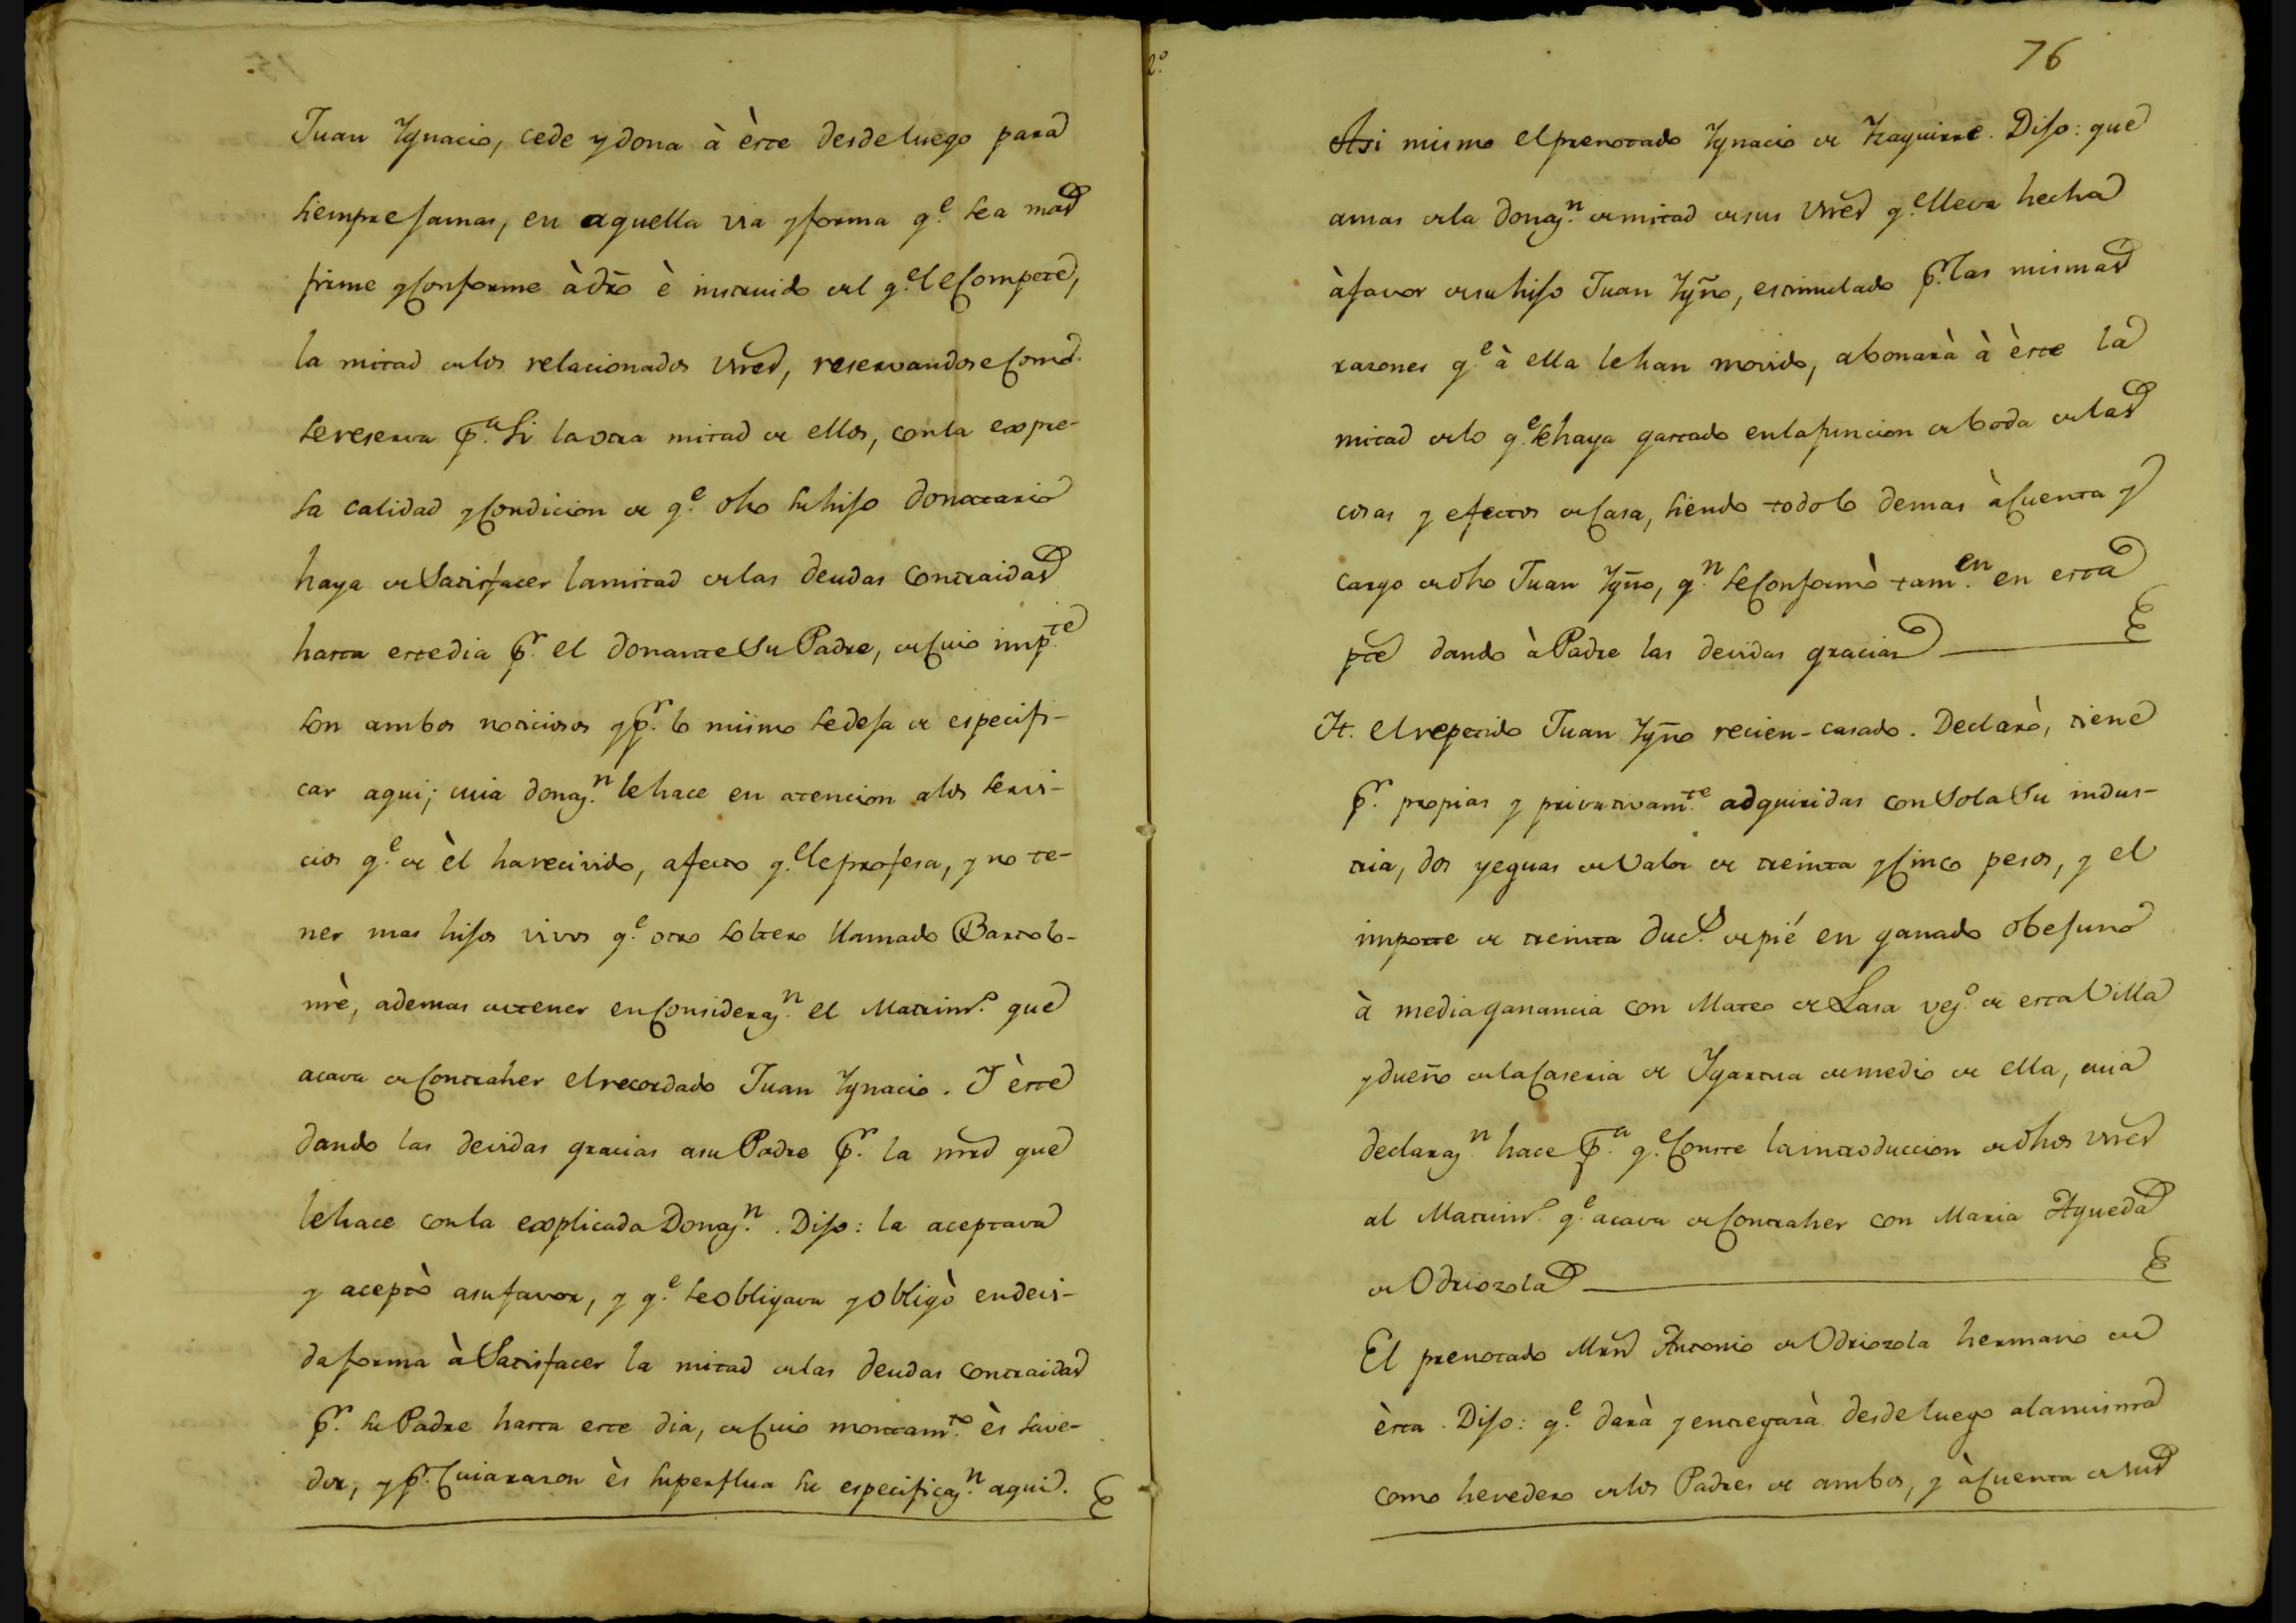 Juan Ygnacio, cede y dona à èste desde luego para
siempre jamas, en aquella via y forma q.e sea mas
firme y conforme à dro è instruido del q.e le compete,
la mitad de los relacionados vnes, reservandose como
se reserva p.a si la otra mitad de ellos, con la expre-
sa calidad y condicion de q.e dho su hijo donatario
haya de satisfacer la mitad de las deudas contraidas
hasta este dia p.r el donante su Padre, de cuio imp.te
son ambos noticiosos y p.r lo mismo se deja de especifi-
car aqui; cuia donaz.n le hace en atencion a los servi-
cios q.e de èl ha recivido, afecto q.e le profesa, y no te-
ner mas hijos vivos q.e otro soltero llamado Bartolo-
mè, ademas de tener en consideraz.n el Matrim.o que
acava de contraher el recordado Juan Ygnacio. Y èste
dando las devidas gracias a su Padre p.r la mrd que
le hace con la explicada Donaz.n. Dijo: la aceptava
y aceptò a su favor, y q.e se obligava y obligò en devi-
da forma à satisfacer la mitad de las deudas contraidas
p.r su Padre hasta este dia, de cuio montam.to ès save-
dor, y p.r cuia razon ès superflua su especificaz.n aqui.
2.o
76
Asi mismo el prenotado Ygnacio de Yzaguirre. Dijo: que
amas de la donaz.n de mitad de sus vnes q.e lleva hecha
à favor de su hijo Juan Ygño, estimulado p.r las mismas
razones q.e à ella le han movido, abonarà à èste la
mitad de lo q.e se haya gastado en la funcion de boda de las
cosas y efectos de casa, siendo todo lo demas à cuenta y
cargo de dho Juan Ygño, q.n se conformò tam.en en esta
pte dando à Padre las devidas gracias
It. el repetido Juan Ygño recien-casado. Declarò, tiene
p.r propias y privativam.te adquiridas con sola su indus-
tria, dos yeguas de valor de treinta y cinco pesos, y el
importe de treinta duc.s de pié en ganado obejuno
à media ganancia con Mateo de Lasa vez.o de esta Villa
y dueño de la Caseria de Ygartua de medio de ella, cuia
declaraz.n hace p.a q.e conste la introduccion de dhos vnes
al Matrim.o q.e acava de contraher con Maria Agueda
de Odriozola
El prenotado Mrn Antonio de Odriozola hermano de
èsta. Dijo: q.e darà y entregarà desde luego a la misma
como heredero de los Padres de ambos, y à cuenta de sus